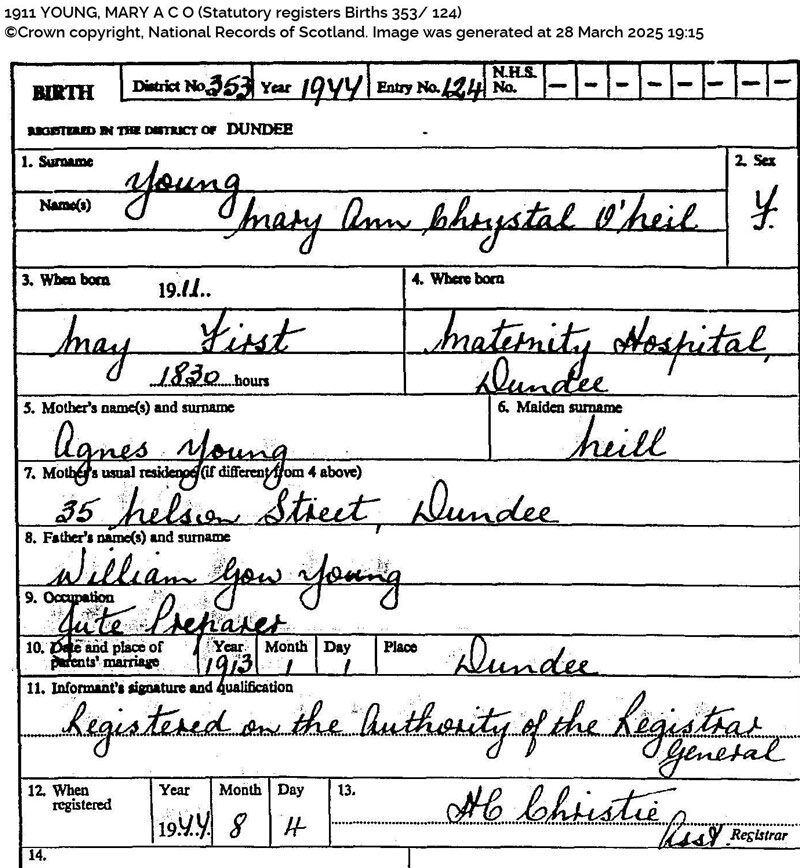 1911 YOUNG, MARY A C O (Statutory registers Births 353/ 124)
©Crown copyright, National Records of Scotland. Image was generated at 28 March 2025 19:15
BIRTH District No. 353 Year 1944 Entry No. 124 N.H.S. No. – – – – – – – –
REGISTERED IN THE DISTRICT OF DUNDEE
1. Surname 2. Sex
Young
Name(s) F.
Mary Ann Chrystal O'Neil
3. When born 1911.. 4. Where born
May First Maternity Hospital,
1830 hours Dundee
5. Mother's name(s) and surname 6. Maiden surname
Agnes Young Neill
7. Mother's usual residence (if different from 4 above)
35 Nelson Street, Dundee
8. Father's name(s) and surname
William Gow Young
9. Occupation
Jute Preparer
10. Date and place of parents' marriage Year 1913 Month 1 Day 1 Place Dundee
11. Informant's signature and qualification
Registered on the Authority of the Registrar
General
12. When registered Year 1944 Month 8 Day 4 13. HC Christie
Asst. Registrar
14.